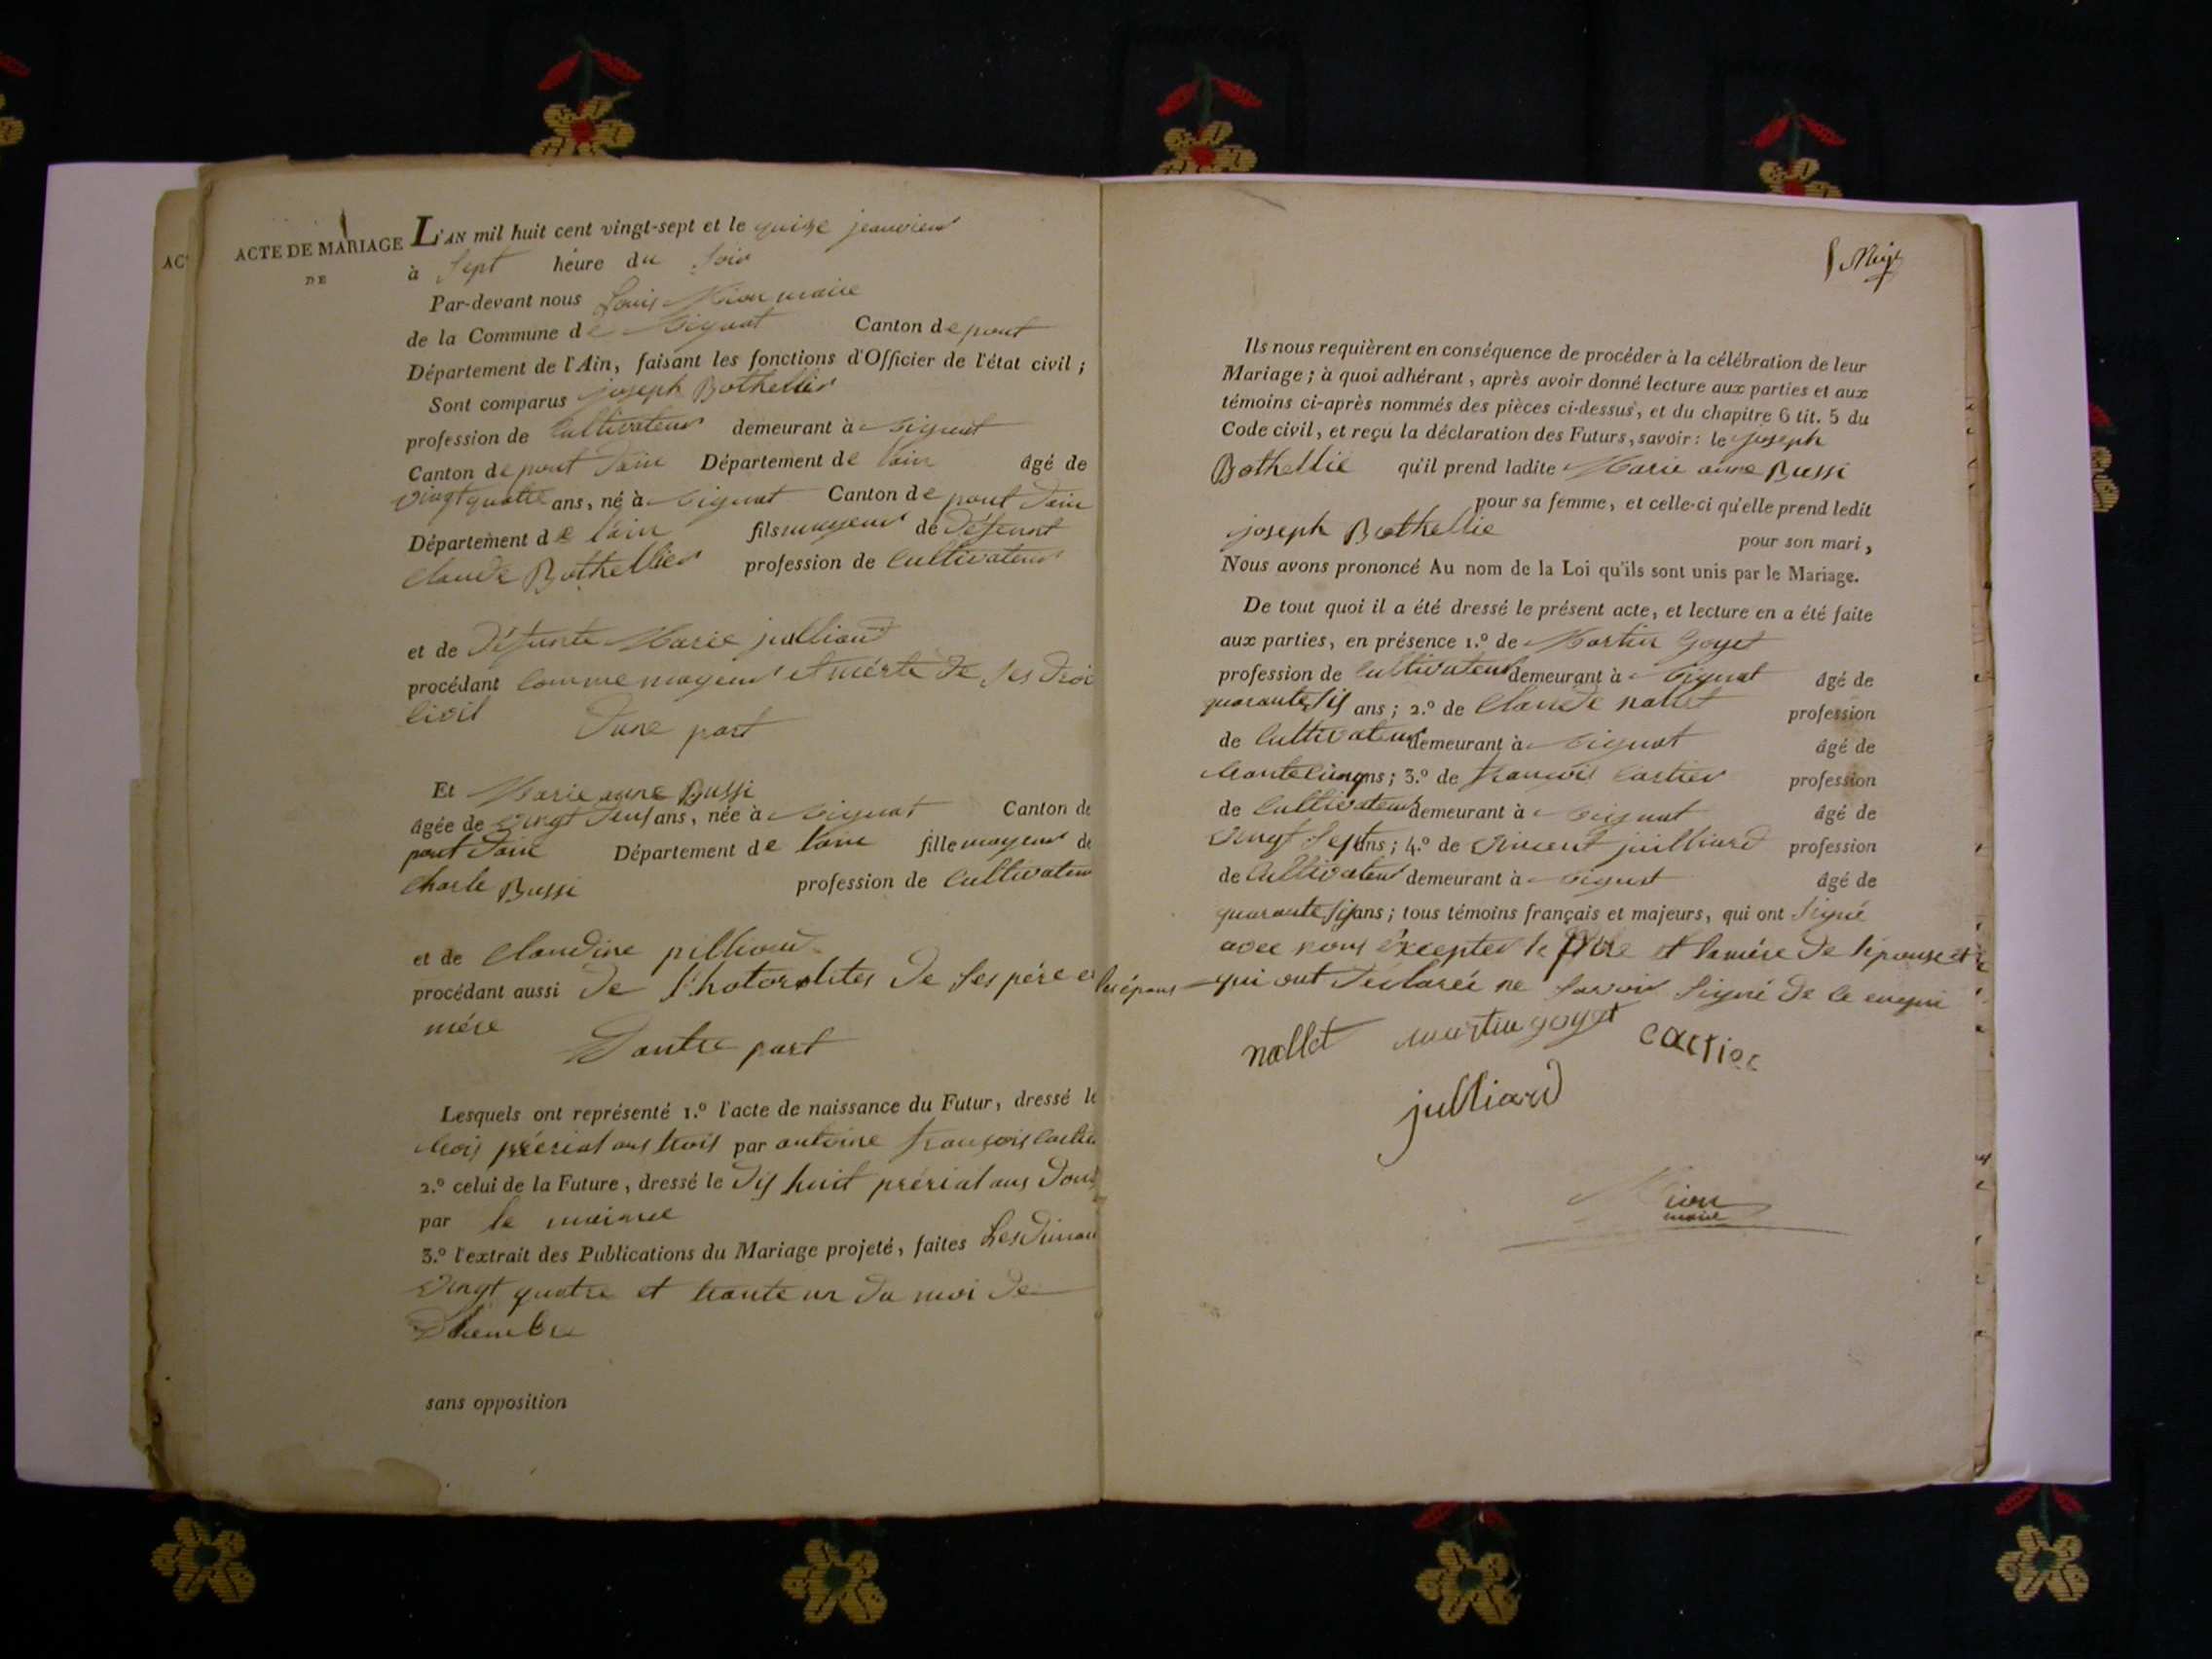 AC
ACTE DE MARIAGE
DE
L'AN mil huit cent vingt-sept et le quize jeanvieur
à Sept heure du Soir
Par-devant nous Louis maire
de la Commune de Canton de pont
Département de l'Ain, faisant les fonctions d'Officier de l'état civil ;
Sont comparus joseph Bothellier
profession de Cultivateur demeurant à
Canton de pont Dain Département de lain âgé de
vingt quatre ans, né à Canton de pont Dain
Département de lain fils mageur de Défeunt
Claude Bothellier profession de Cultivateur
et de Défunte Marie julliard
procédant Comme mageur et de ses droi
Civil
Dune part
Et Marie anne Bussi
âgée de vingt ans, née à Canton de
pont Dain Département de lain fille mageur de
Charle Bussi profession de Cultivateur
et de Claudine
procédant aussi de l'hotorolites de ses pére et
mére
Dautre part
Lesquels ont représenté 1.º l'acte de naissance du Futur, dressé le
trois préerial ans trois par antoine françois Cartier
2.º celui de la Future, dressé le dis huit prérial ans
par le maime
3.º l'extrait des Publications du Mariage projeté, faites Les diman
vingt quatre et trante un du moi de
sans opposition
Ils nous requièrent en conséquence de procéder à la célébration de leur
Mariage ; à quoi adhérant, après avoir donné lecture aux parties et aux
témoins ci-après nommés des pièces ci-dessus, et du chapitre 6 tit. 5 du
Code civil, et reçu la déclaration des Futurs, savoir : le joseph
Bothellie qu'il prend ladite Marie anne Bussi
pour sa femme, et celle-ci qu'elle prend ledit
joseph Bothellie pour son mari,
Nous avons prononcé Au nom de la Loi qu'ils sont unis par le Mariage.
De tout quoi il a été dressé le présent acte, et lecture en a été faite
aux parties, en présence 1.º de Martin Goyet
profession de Cultivateur demeurant à âgé de
quarante sis ans ; 2.º de Claude nallet profession
de Cultivateur demeurant à âgé de
ans ; 3.º de francois Cartier profession
de Cultivateur demeurant à âgé de
vingt Sept ans ; 4.º de vincent juilliard profession
de Cultivateur demeurant à âgé de
quarante sis ans ; tous témoins français et majeurs, qui ont Signé
avec nous éxcepter le père et la mére de lépouse et
les épous qui ont déclaréé ne savoir Signé de ce enqui
nallet martin goyet cartier
julliard
maire